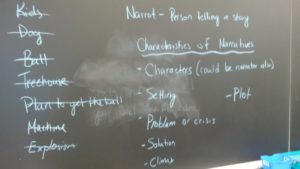 Kids
Dog
Ball
Treehouse
Plan to get the ball
Machine
Explosion
Narrat - Person telling a story
Characteristics of Narratives
- Characters (could be narrator also)
- Setting
- Plot
- Problem or crisis
- Solution
- Climax